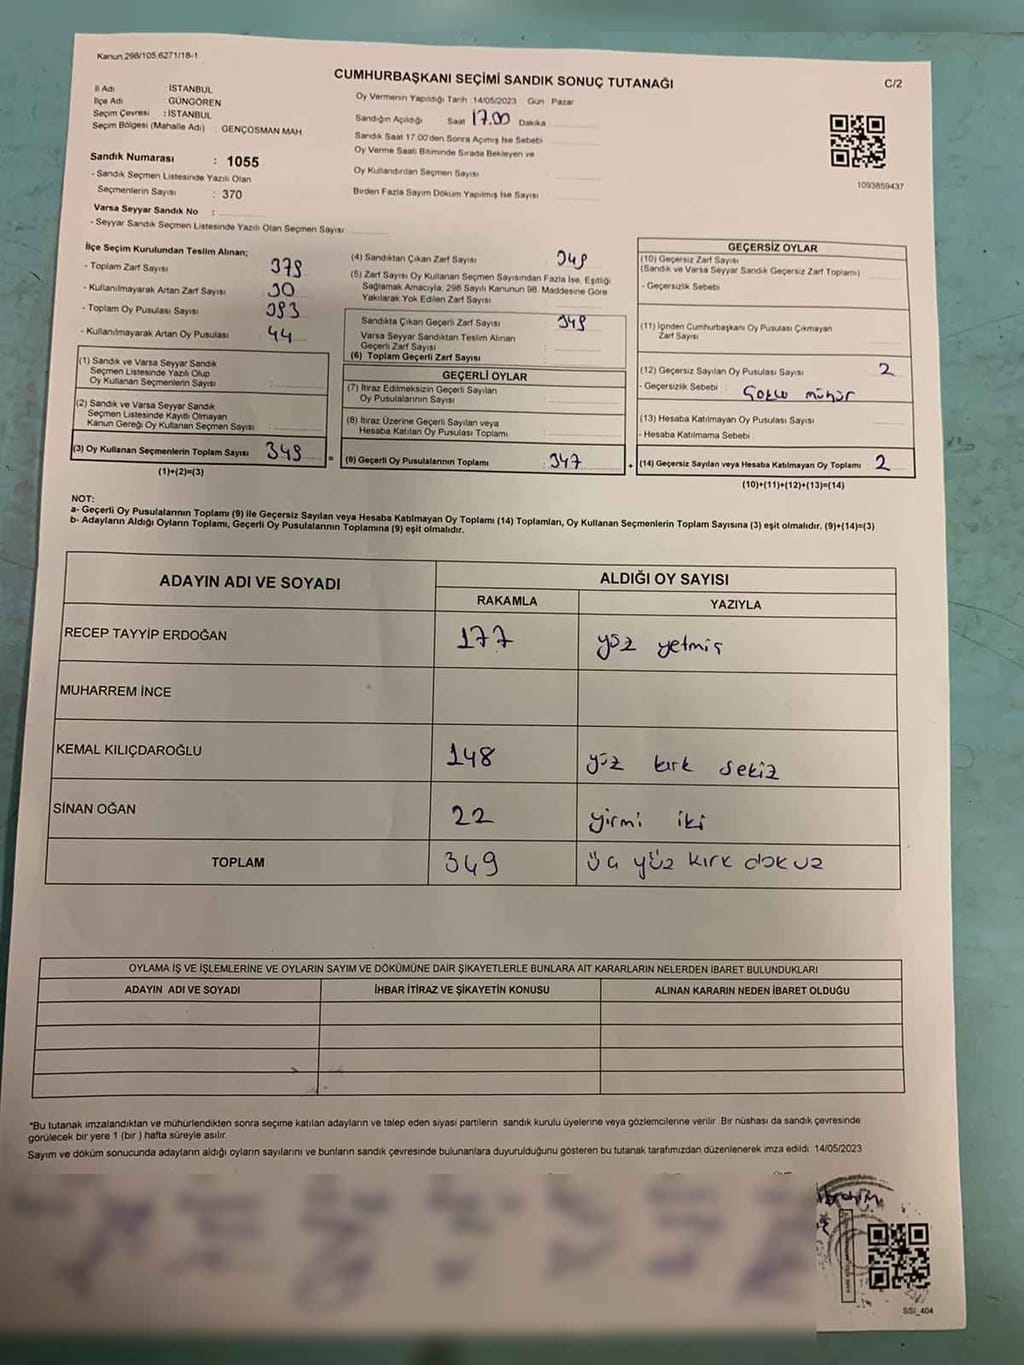 Kanun 298/105 6271/18-1
CUMHURBAŞKANI SEÇİMİ SANDIK SONUÇ TUTANAĞI
C/2
İl Adı : İSTANBUL
İlçe Adı : GÜNGÖREN
Seçim Çevresi : İSTANBUL
Seçim Bölgesi (Mahalle Adı) : GENÇOSMAN MAH.
Sandık Numarası : 1055
- Sandık Seçmen Listesinde Yazılı Olan
Seçmenlerin Sayısı : 370
Varsa Seyyar Sandık No :
- Seyyar Sandık Seçmen Listesinde Yazılı Olan Seçmen Sayısı:
Oy Vermenin Yapıldığı Tarih : 14/05/2023 Gün : Pazar
Sandığın Açıldığı Saat 17.00 Dakika
Sandık Saat 17.00'den Sonra Açımış İse Sebebi
Oy Verme Saati Bitiminde Sırada Bekleyen ve
Oy Kullandırılan Seçmen Sayısı
Birden Fazla Sayım Döküm Yapılmış İse Sayısı
1093859437
İlçe Seçim Kurulundan Teslim Alınan;
- Toplam Zarf Sayısı 379
- Kullanılmayarak Artan Zarf Sayısı 30
- Toplam Oy Pusulası Sayısı 393
- Kullanılmayarak Artan Oy Pusulası : 44
(1) Sandık ve Varsa Seyyar Sandık
Seçmen Listesinde Yazılı Olup
Oy Kullanan Seçmenlerin Sayısı :
(2) Sandık ve Varsa Seyyar Sandık
Seçmen Listesinde Kayıtlı Olmayan
Kanun Gereği Oy Kullanan Seçmen Sayısı :
(3) Oy Kullanan Seçmenlerin Toplam Sayısı 349
(1)+(2)=(3)
(4) Sandıktan Çıkan Zarf Sayısı 349
(5) Zarf Sayısı Oy Kullanan Seçmen Sayısından Fazla İse, Eşitliği
Sağlamak Amacıyla; 298 Sayılı Kanunun 98. Maddesine Göre
Yakılarak Yok Edilen Zarf Sayısı
Sandıkta Çıkan Geçerli Zarf Sayısı : 349
Varsa Seyyar Sandıktan Teslim Alınan
Geçerli Zarf Sayısı
(6) Toplam Geçerli Zarf Sayısı
GEÇERLİ OYLAR
(7) İtiraz Edilmeksizin Geçerli Sayılan
Oy Pusulalarının Sayısı
(8) İtiraz Üzerine Geçerli Sayılan veya
Hesaba Katılan Oy Pusulası Toplamı
= (9) Geçerli Oy Pusulalarının Toplamı : 347
GEÇERSİZ OYLAR
(10) Geçersiz Zarf Sayısı
(Sandık ve Varsa Seyyar Sandık Geçersiz Zarf Toplamı)
- Geçersizlik Sebebi
(11) İçinden Cumhurbaşkanı Oy Pusulası Çıkmayan
Zarf Sayısı
(12) Geçersiz Sayılan Oy Pusulası Sayısı 2
- Geçersizlik Sebebi : mühür
(13) Hesaba Katılmayan Oy Pusulası Sayısı
- Hesaba Katılmama Sebebi
+ (14) Geçersiz Sayılan veya Hesaba Katılmayan Oy Toplamı : 2
(10)+(11)+(12)+(13)=(14)
NOT:
a- Geçerli Oy Pusulalarının Toplamı (9) ile Geçersiz Sayılan veya Hesaba Katılmayan Oy Toplamı (14) Toplamları, Oy Kullanan Seçmenlerin Toplam Sayısına (3) eşit olmalıdır. (9)+(14)=(3)
b- Adayların Aldığı Oyların Toplamı, Geçerli Oy Pusulalarının Toplamına (9) eşit olmalıdır.
ADAYIN ADI VE SOYADI
ALDIĞI OY SAYISI
RAKAMLA YAZIYLA
RECEP TAYYİP ERDOĞAN 177 yüz yetmiş
MUHARREM İNCE
KEMAL KILIÇDAROĞLU 148 yüz kırk sekiz
SİNAN OĞAN 22 yirmi iki
TOPLAM 349 üç yüz kırk dokuz
OYLAMA İŞ VE İŞLEMLERİNE VE OYLARIN SAYIM VE DÖKÜMÜNE DAİR ŞİKAYETLERLE BUNLARA AİT KARARLARIN NELERDEN İBARET BULUNDUKLARI
ADAYIN ADI VE SOYADI İHBAR İTİRAZ VE ŞİKAYETİN KONUSU ALINAN KARARIN NEDEN İBARET OLDUĞU
*Bu tutanak imzalandıktan ve mühürlendikten sonra seçime katılan adayların ve talep eden siyasi partilerin sandık kurulu üyelerine veya gözlemcilerine verilir. Bir nüshası da sandık çevresinde
görülecek bir yere 1 (bir) hafta süreyle asılır.
Sayım ve döküm sonucunda adayların aldığı oyların sayılarını ve bunların sandık çevresinde bulunanlara duyurulduğunu gösteren bu tutanak tarafımızdan düzenlenerek imza edildi. 14/05/2023
SSI_404